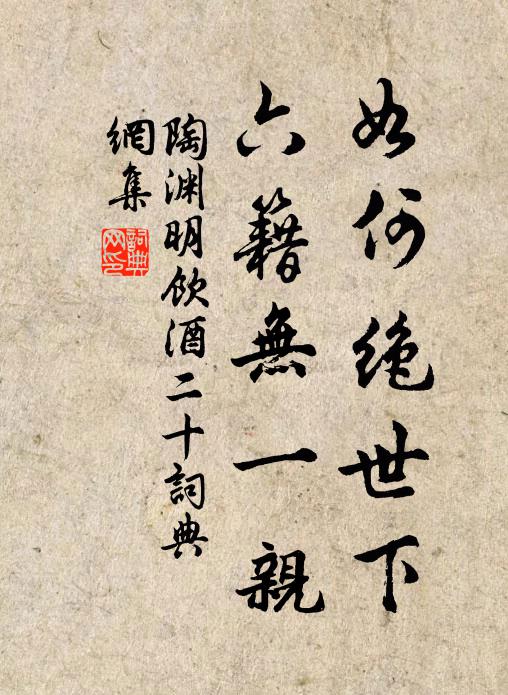 如何绝世下
六籍無一親
陶渊明飲酒二十詞典
網集
詞典网印